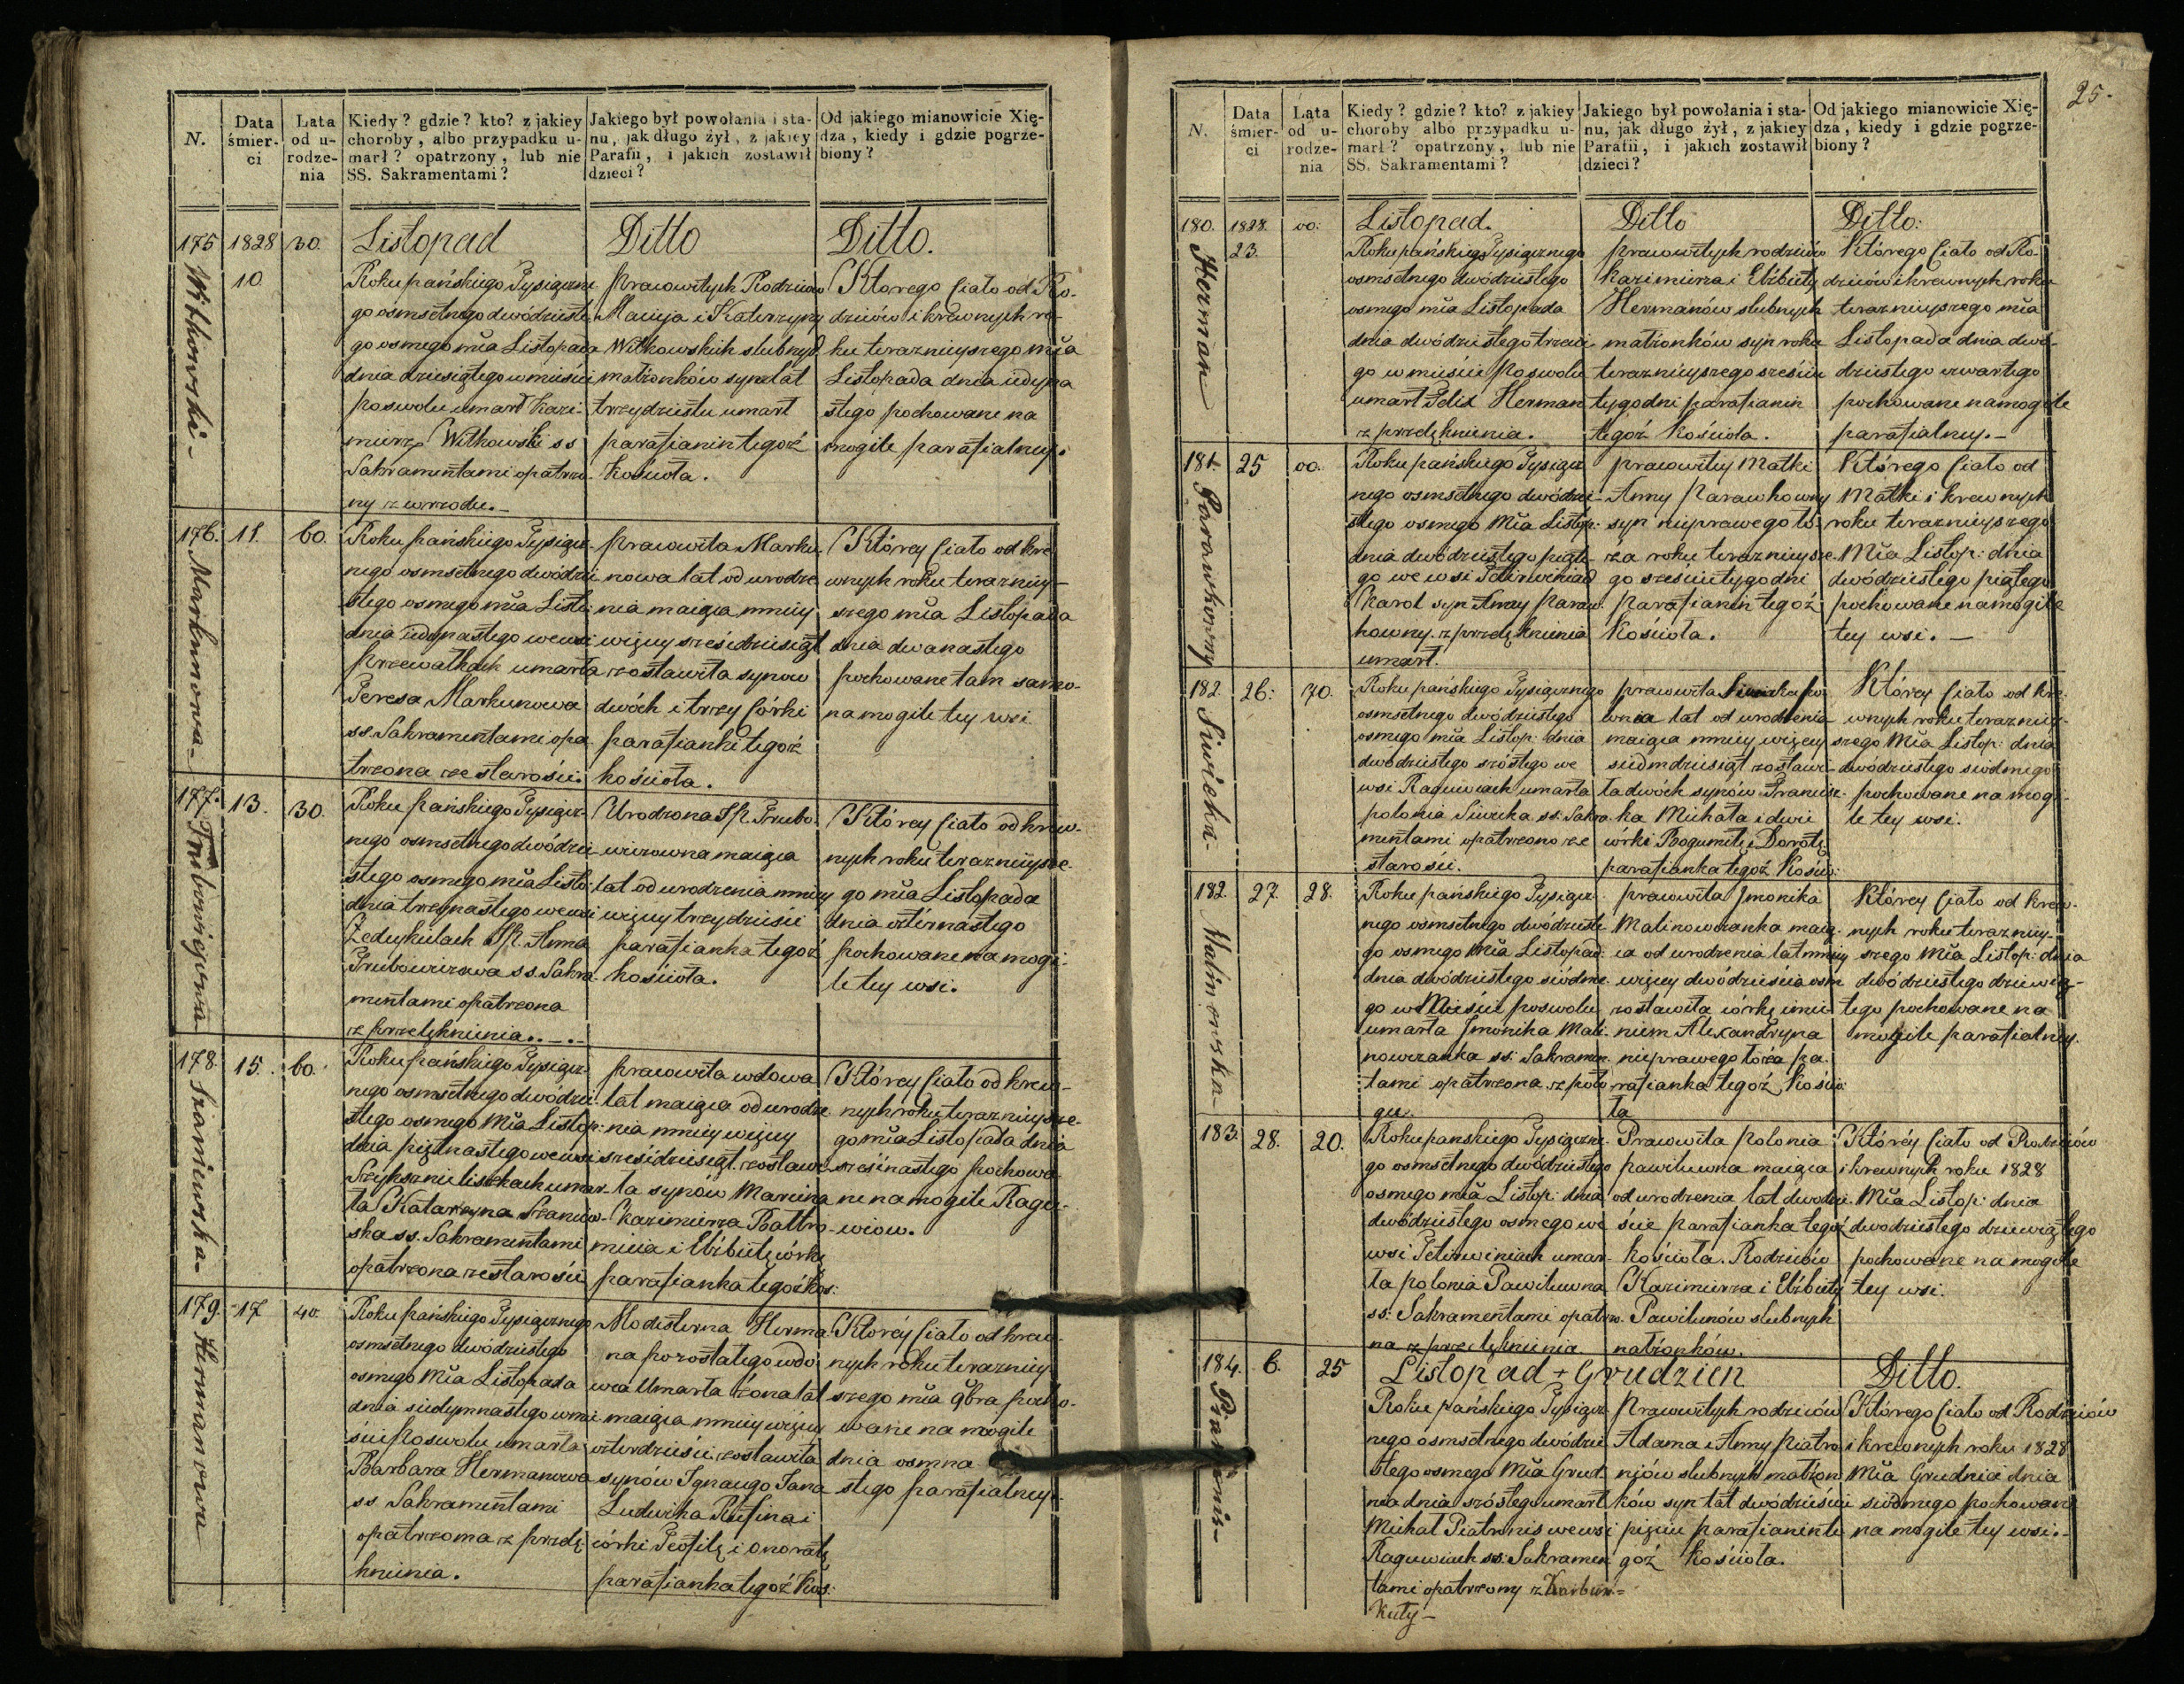 N.
Data śmier- ci
Lata od u- rodze- nia
Kiedy? gdzie? kto? z jakiey
choroby, albo przypadku u-
marł? opatrzony, lub nie
SS. Sakramentami?
Jakiego był powołania i sta-
nu, jak długo żył, z jakiey
Parafii, i jakich zostawił
dzieci?
Od jakiego mianowicie Xię-
dza, kiedy i gdzie pogrze-
biony?
175 1828 30.
10
Witkowski-
Listopad
Roku pańskiego Tysiączne
go osmsetnego dwódzieste
go osmego mĩa Listopada
dnia dziesiątego w mieście
poswolu umarł Kazi-
mierz Witkowski ss
Sakramentami opatrzo-
ny z wrzodu.-
Ditto
prawowitych Rodziców
Macieja i Katarzyny
Witkowskich slubnych
małżonków syn lat
trzydziestu umarł
parafianin tegoż
Kościoła.
Ditto.
Którego Ciało od Ro-
dziców i krewnych ro-
ku teraznieyszego mĩa
Listopada dnia iedyna
stego pochowane na
mogile parafialney.
176. 11. 60.
Markunowa-
Roku pańskiego Tysiącz-
nego osmsetnego dwódzie
stego osmego mĩa Listo
dnia iedynastego we wsi
Przewałkach umarła
Teresa Markunowa
ss. Sakramentami opa
trzona ze starości.
prawowita Marku-
nowa lat od urodze
nia maiąca mniey
więcey sześćdziesiąt
zostawiła synow
dwóch i trzy Córki
parafianki tegoż
kościoła.
Którey Ciało od kre
wnych roku terazniey-
szego mĩa Listopada
dnia dwanastego
pochowane tam samo-
na mogile tey wsi
177. 13. 30.
Roku pańskiego Tysiącz-
nego osmsetnego dwódzie
stego osmego mĩa Listo-
dnia trzynastego we wsi
JP. Anna
ss. Sakra-
mentami opatrzona
z przelęknienia..-.-
Urodzona JP. Trubo-
wiczowna maiąca
lat od urodzenia mniey
więcey trzydzieści
parafianka tegoż
kościoła.
Którey Ciało od krew-
nych roku teraznieysze
go mĩa Listopada
dnia czternastego
pochowane na mogi-
le tey wsi.
178. 15. 60.
Roku pańskiego Tysiącz-
nego osmsetnego dwódzie
stego osmego Mĩa Listop:
dnia piętnastego we wsi
umar-
ła Katarzyna
ska ss. Sakramentami
opatrzona ze starości
prawowita wdowa
lat maiąca od urodze
nia mniey więcey
sześćdziesiąt zostawi-
ła synów Marcina
Kazimierza Bałtro-
mieia i Elżbietę córkę
parafianka tegoż Koś:
Którey Ciało od krew-
nych roku teraznieysze-
go mĩa Listopada dnia
sześćnastego pochowa-
ne na mogile Ragu-
wiow.
179. 17 40.
Hermanowa
Roku pańskiego Tysiącznego
osmsetnego dwódziestego
osmego Mĩa Listopada
dnia siedymnastego w mie
ście Poswolu umarła
Barbara Hermanowa
ss. Sakramentami
opatrzona z przelę
knienia.
Modesterna Herma-
na pozostałego wdo
wca Umarła żona lat
maiąca mniey więcey
czterdzieści zostawiła
synów Ignacego Jana
Ludwika Rufina i
córki Teofilę i Onoratę
parafianka tegoż Koś:
Którey Ciało od krew-
nych roku terazniey
szego mĩa 9bra pocho-
wane na mogile
dnia osmna
stego parafialney.
25.
N.
Data śmier- ci
Lata od u- rodze- nia
Kiedy? gdzie? kto? z jakiey
choroby albo przypadku u-
marł? opatrzony, lub nie
SS. Sakramentami?
Jakiego był powołania i sta-
nu, jak długo żył, z jakiey
Parafii, i jakich zostawił
dzieci?
Od jakiego mianowicie Xię-
dza, kiedy i gdzie pogrze-
biony?
180. 1828. 00.
23.
Herman
Listopad.
Roku pańskiego Tysiącznego
osmsetnego dwódziestego
osmego mĩa Listopada
dnia dwódziestego trzecie-
go w mieście Poswolu
umarł Felix Herman
z przelęknienia.
Ditto
prawowitych rodziców
Kazimierza i Elżbiety
Hermanów slubnych
małżonków syn roku
teraznieyszego sześciu
tygodni parafianin
tegoż Kościoła.
Ditto.
Którego Ciało od Ro-
dziców i krewnych roku
teraznieyszego mĩa
Listopada dnia dwó-
dziestego czwartego
pochowane na mogile
parafialney.-
181. 25 00.
Roku pańskiego Tysiącz
nego osmsetnego dwódzie-
stego osmego Mĩa Listop:
dnia dwódziestego piąte-
go we wsi
Karol syn Anny
z przelęknienia
umarł.
prawowitey Matki
Anny
syn nieprawego ło-
ża roku teraznieysze-
go szeście tygodni
parafianin tegoż
Kościoła.
Którego Ciało od
Matki i krewnych
roku teraznieyszego
Mĩa Listop: dnia
dwódziestego piątego
pochowane na mogile
tey wsi.-
182. 26. 70.
Siwicka-
Roku pańskiego Tysiącznego
osmsetnego dwódziestego
osmego mĩa Listop: dnia
dwódziestego szóstego we
wsi Raguwiach umarła
polonia Siwicka ss. Sakra-
mentami opatrzono ze
starości.
prawowita Siwicka
lat od urodzenia
maiąca mniey więcey
siedmdziesiąt zostawi-
ła dwóch synów Francisz-
ka Michała i dwie
córki Bogumiłę i Dorotę
parafianka tegoż Kościo:
Którey Ciało od kre-
wnych roku teraznie-
szego Mĩa Listop: dnia
dwódziestego siódmego
pochowane na mogi-
le tey wsi.
182. 27. 28.
Roku pańskiego Tysiącz-
nego osmsetnego dwódzieste
go osmego Mĩa Listopad:
dnia dwódziestego siódme-
go w Mieście poswolu
umarła Jmonika Mali-
nowzanka ss. Sakramen-
tami opatrzona z poło
gu.
prawowita Jmonika
Malinowzanka maią-
ca od urodzenia lat mniey
więcey dwódzieścia osm
zostawiła córkę imie-
niem Alexandryna
nieprawego łoża pa-
rafianka tegoż Kościo:
ła
Którey Ciało od krew-
nych roku teraznie-
szego Mĩa Listop: dnia
dwódziestego dziewią-
tego pochowane na
mogile parafialney.
183. 28. 20.
Roku pańskiego Tysiączne-
go osmsetnego dwódziestego
osmego mĩa Listop: dnia
dwódziestego osmego we
wsi umar-
ła polonia
ss. Sakramentami opatrzo-
na z przelęknienia.
Prawowita polonia
maiąca
od urodzenia lat dwódzie-
ście parafianka tegoż
Kościoła. Rodziców
Kazimierza i Elżbiety
slubnych
małżonków.
Którey Ciało od Rodziców
i krewnych roku 1828
Mĩa Listop: dnia
dwódziestego dziewiątego
pochowane na mogile
tey wsi.
184. 6. 25
Listopad + Grudzien
Ditto.
Roku pańskiego Tysiącz-
nego ósmsetnego dwódzie
stego osmego Mĩa Grud-
nia dnia szóstego umarł
Michał Piatronis we wsi
Raguwiach ss. Sakramen
tami opatrzony z Karbun-
kuły-
Prawowitych rodziców
Adama i Anny Piatro
nisów slubnych małżon
ków syn lat dwódzieści
pięciu parafianin te
goż Kościoła.
Którego Ciało od Rodziców
i krewnych roku 1828
Mĩa Grudnia dnia
siódmego pochowane
na mogile tey wsi.-